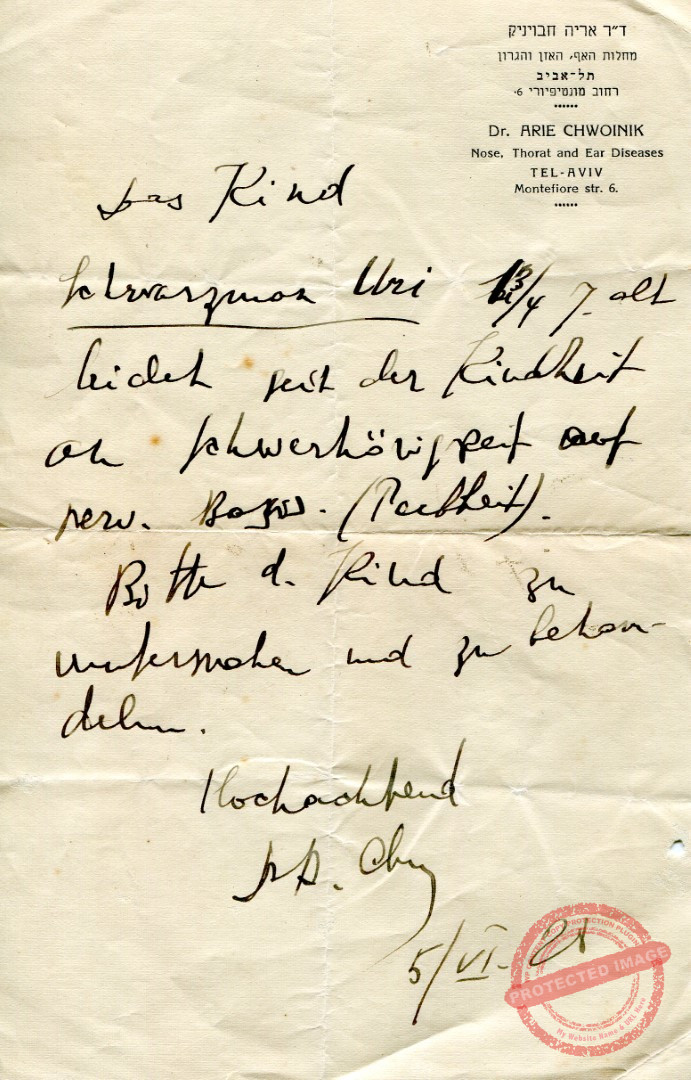 ד"ר אריה חבויניק
מחלות האף, האזן והגרון
תל-אביב
רחוב מונטיפיורי 6.
Dr. ARIE CHWOINIK
Nose, Thorat and Ear Diseases
TEL-AVIV
Montefiore str. 6.
Das Kind
Schwarzman Uri 3/4 J. alt
leidet seit der Kindheit
an Schwerhörigkeit auf
nerv. Basis. (Taubheit).
Bitte d. Kind zu
untersuchen und zu behan-
deln.
Hochachtend
Dr. A. Chw
5/VI.
PROTECTED IMAGE
My Website Name & URL Here